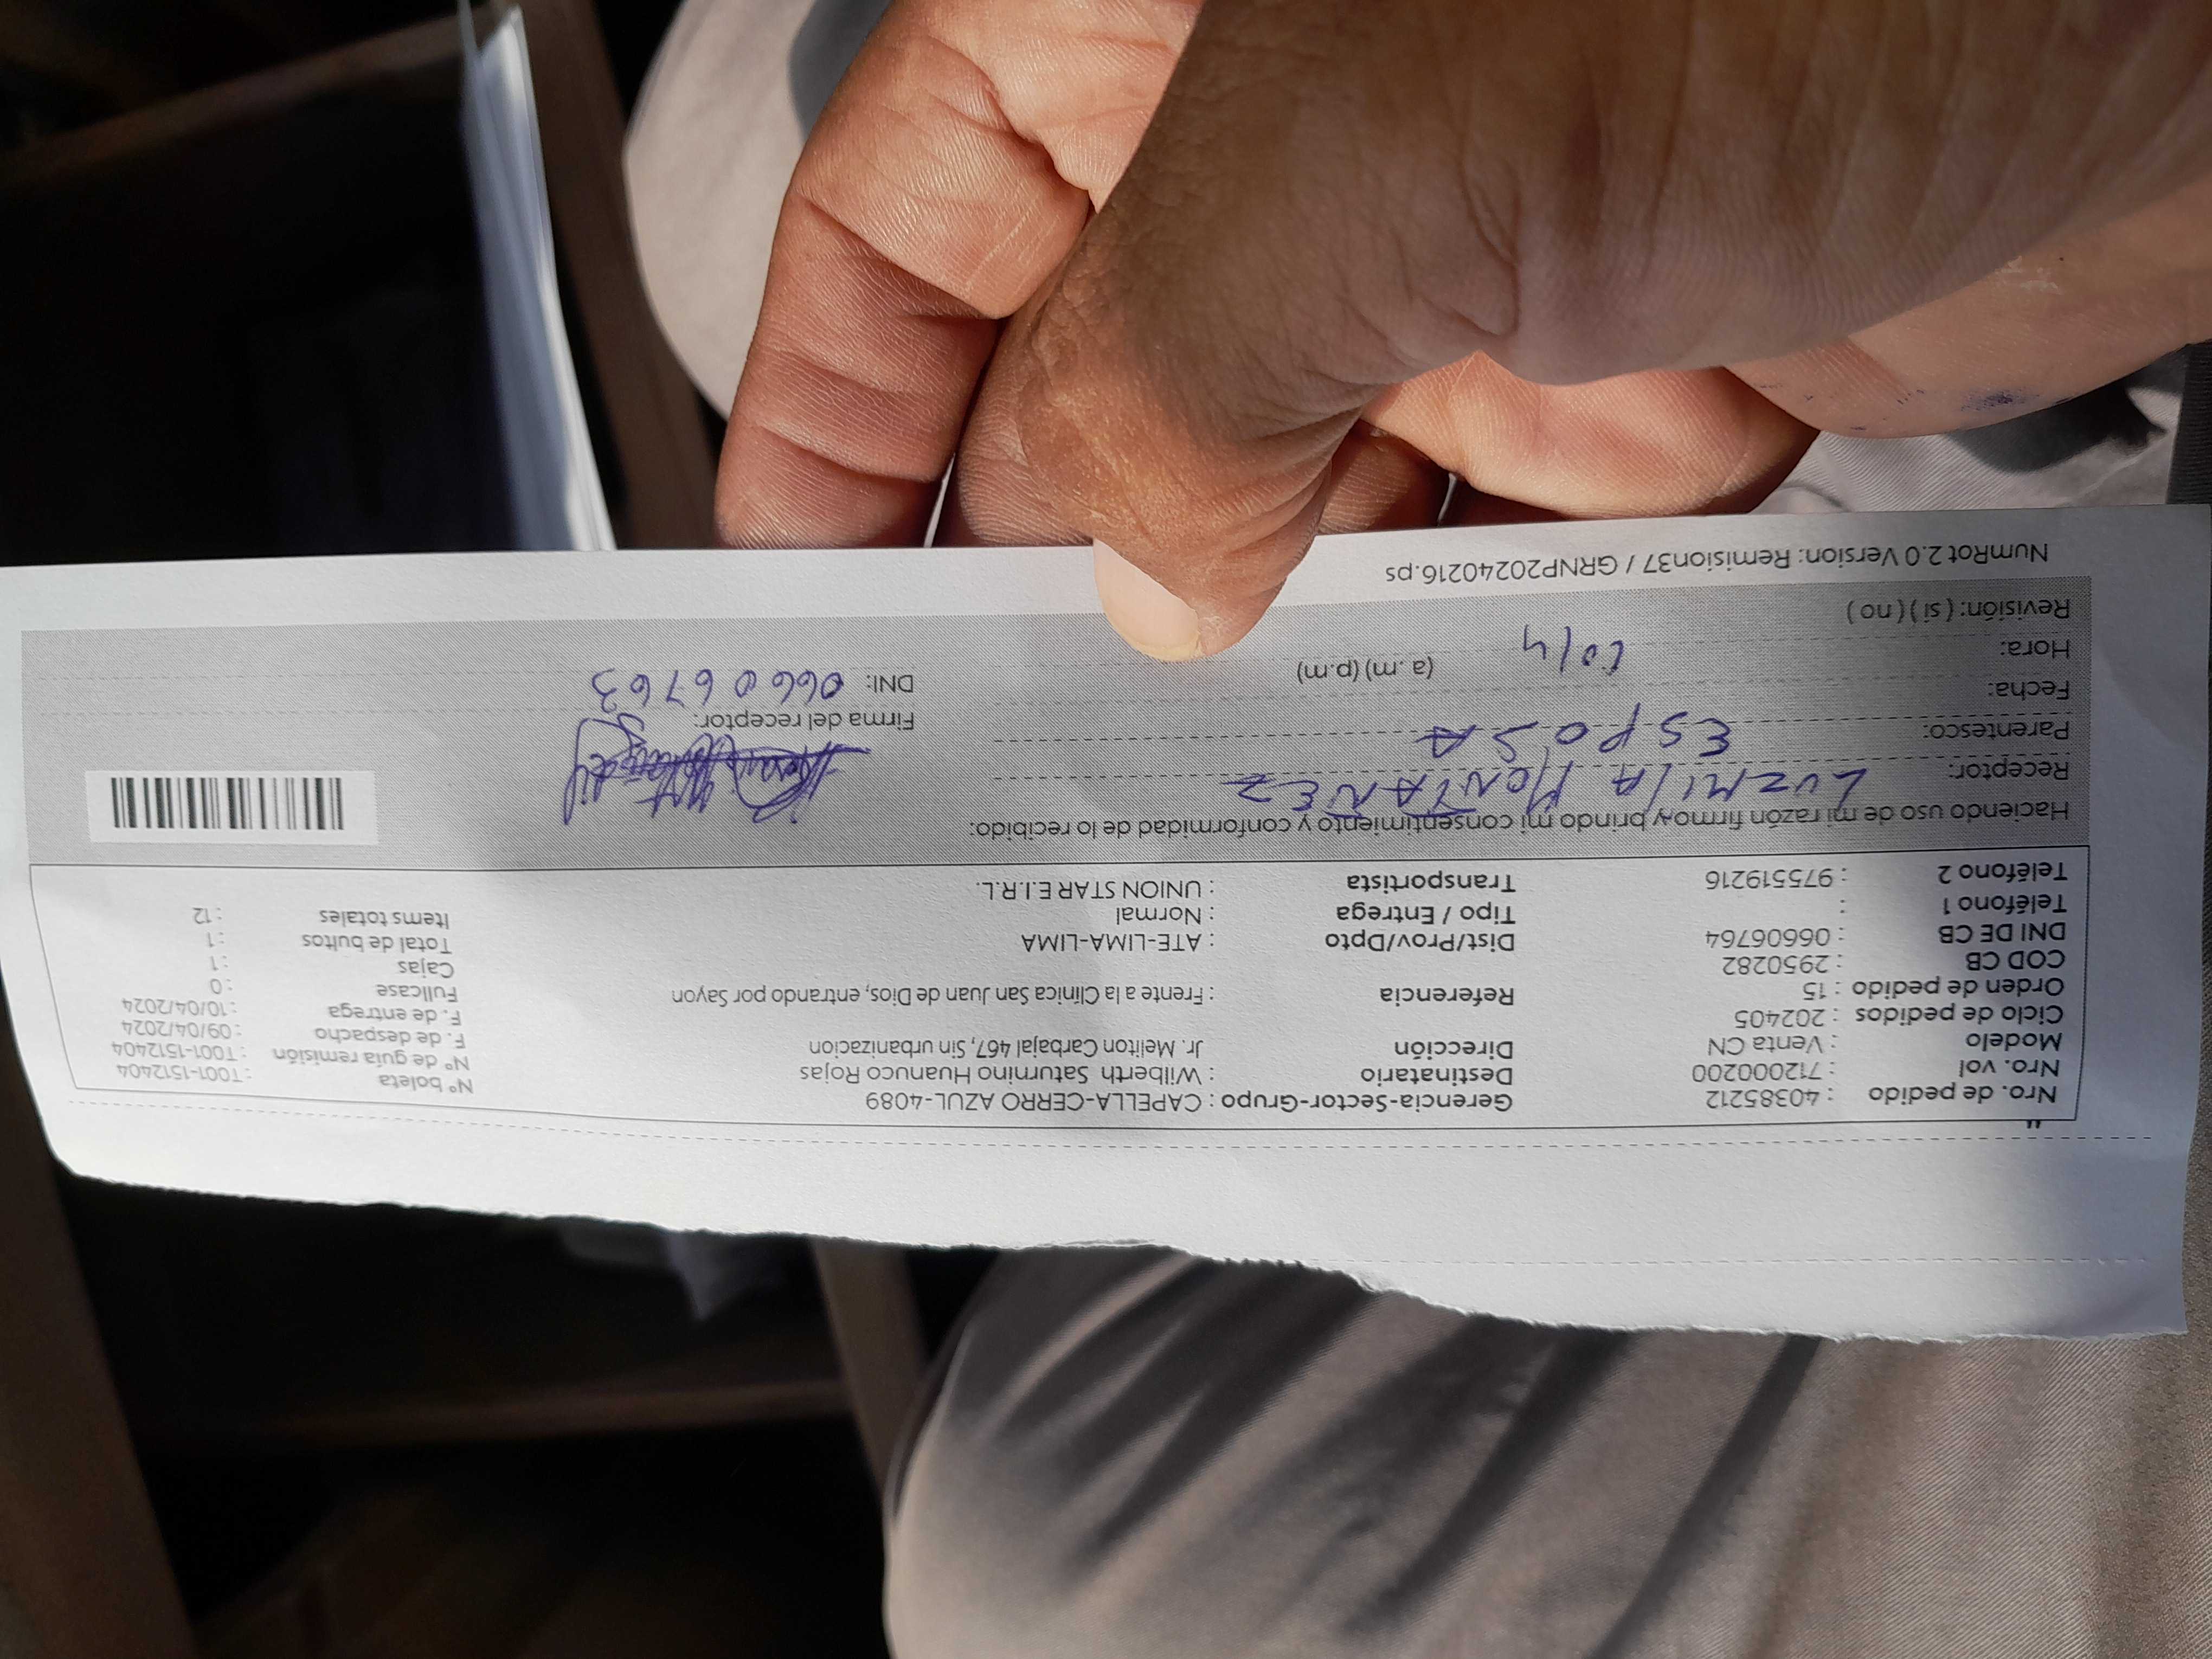 Nro. de pedido : 40385212
Nro. vol : 712000200
Modelo : Venta CN
Ciclo de pedidos : 202405
Orden de pedido : 15
COD CB : 2950282
DNI DE CB : 06606764
Teléfono 1 :
Teléfono 2 : 975519216
Gerencia-Sector-Grupo : CAPELLA-CERRO AZUL-4089
Destinatario : Wilberth Saturnino Huanuco Rojas
Dirección Jr. Meliton Carbajal 467, Sin urbanizacion
Referencia : Frente a la Clínica San Juan de Dios, entrando por Sayon
Dist/Prov/Dpto : ATE-LIMA-LIMA
Tipo / Entrega : Normal
Transportista : UNION STAR E.I.R.L.
N° boleta : T001-1512404
N° de guía remisión : T001-1512404
F. de despacho : 09/04/2024
F. de entrega : 10/04/2024
Fullcase : 0
Cajas : 1
Total de bultos : 1
Items totales : 12
Haciendo uso de mi razón firmo y brindo mi consentimiento y conformidad de lo recibido:
Receptor: LUZMILA MONTAÑEZ
Parentesco: ESPOSA
Fecha:
Hora: (a. m) (p.m)
Revisión: ( si ) ( no )
Firma del receptor:
DNI: 06606763
NumRot 2.0 Version: Remision37 / GRNP20240216.ps